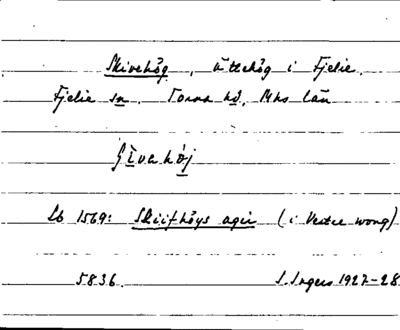 Skivehög, ättehög i Fjelie,
Fjelie sn. Torna hd, Mhs län
Lb 1569: Skiifhöys ager (i Vester wong)
5836. S. Ingers 1927-28